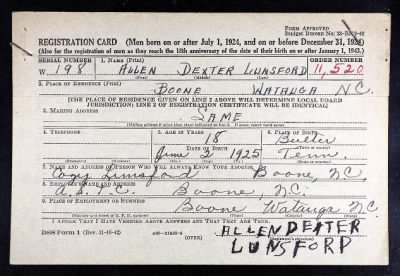 FORM APPROVED
REGISTRATION CARD (Men born on or after July 1, 1924, and on or before December 31, 1924)
(Also for the registration of men as they reach the 18th anniversary of the date of their birth on or after January 1, 1943.)
SERIAL NUMBER 1. NAME (Print) ORDER NUMBER
W 198 ALLEN DEXTER LUNSFORD 11,520
2. PLACE OF RESIDENCE (Print)
BOONE WATAUGA N.C.
[THE PLACE OF RESIDENCE GIVEN ON LINE 2 ABOVE WILL DETERMINE LOCAL BOARD
JURISDICTION; LINE 2 OF REGISTRATION CERTIFICATE WILL BE IDENTICAL]
3. MAILING ADDRESS
SAME
4. TELEPHONE 5. AGE IN YEARS 6. PLACE OF BIRTH
18 Butler
DATE OF BIRTH
June 2 1925 Tenn.
7. NAME AND ADDRESS OF PERSON WHO WILL ALWAYS KNOW YOUR ADDRESS
Lunsford Boone, N.C.
8. EMPLOYER'S NAME AND ADDRESS
A.S.T.C. Boone, N.C.
9. PLACE OF EMPLOYMENT OR BUSINESS
Boone Watauga N.C.
I AFFIRM THAT I HAVE VERIFIED ABOVE ANSWERS AND THAT THEY ARE TRUE.
DSS FORM 1 (Rev. 11-16-42) (OVER)
ALLEN DEXTER
LUNSFORD